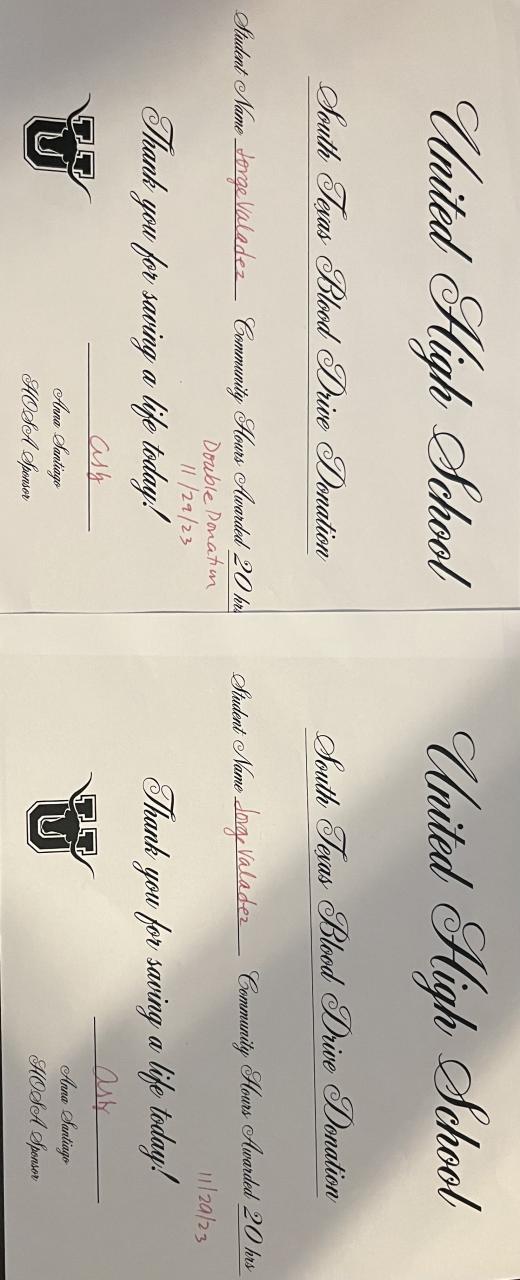 United High School
South Texas Blood Drive Donation
Student Name Jorge Valadez Community Hours Awarded 20 hrs
Double Donation
11/29/23
Thank you for saving a life today!
Anna Santiago
HOSA Sponsor
U
United High School
South Texas Blood Drive Donation
Student Name Jorge Valadez Community Hours Awarded 20 hrs
11/29/23
Thank you for saving a life today!
Anna Santiago
HOSA Sponsor
U